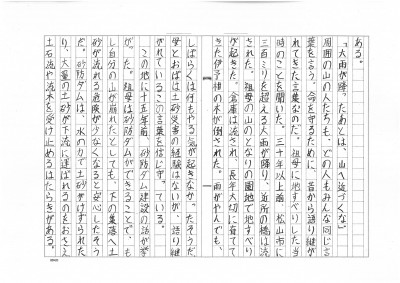 ある。
「大雨が降ったあとは、山へ近づくな」
周囲の山の人たちも、どの人もみんな同じ言
葉を言う。命を守るために、昔から語り継が
れてきた言葉なのだ。祖母に地すべりした当
時のことを聞いた。三十年以上前、松山市に
三百ミリを超える大雨が降り、近所の橋は流
された。祖母の山のとなりの園地で地すべり
が起きた。倉庫は流され、長年大切に育てて
きた伊予柑の木が倒された。雨がやんでも、
しばらくは何もやる気が起きなかった。そうだ
母とおばは土砂災害の経験はないが、語り継
がれているこの言葉を信じ守っている。
この地に十五年前、砂防ダム建設の話が挙
がった。祖母は砂防ダムができることで、も
し自分の山が崩れたとしても、下の集落へ土
砂が流れる危険が少なくなると安心したそう
だ。砂防ダムは、水の力で土砂がけずられた
り、大量の土砂が下流に運ばれるのをおさえ
土石流や流木を受け止めるはたらきがある。